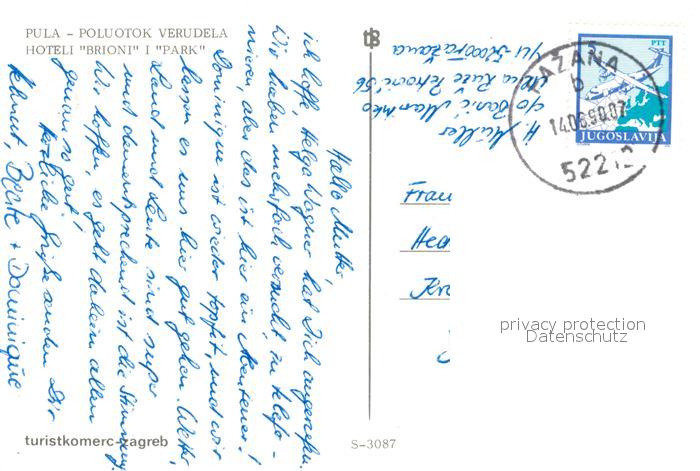 PULA - POLUOTOK VERUDELA
HOTELI "BRIONI" I "PARK"
Hallo Mutter,
ich hoffe Helga Wagner hat Dich angerufen.
Wir haben mehrfach versucht, zu telefo-
nieren aber das ist hier ein Abenteuer!
Dominique ist wieder topfit, und wir
lassen es uns hier gut gehen. Wetter,
Land und Leute sind super
und dementsprechend ist die Stimmung.
Wir hoffen, es geht daheim allen
genau so gut!
Herzliche Grüße senden Dir
Helmut, Beate + Dominique
H. Müller
c/o
Ulica Ruže Petrović 56
YU
turistkomerc-zagreb
S-3087
tz
5
PTT
JUGOSLAVIJA
FAŽANA
b
14.06.90.07
52212
Frau
privacy protection
Datenschutz